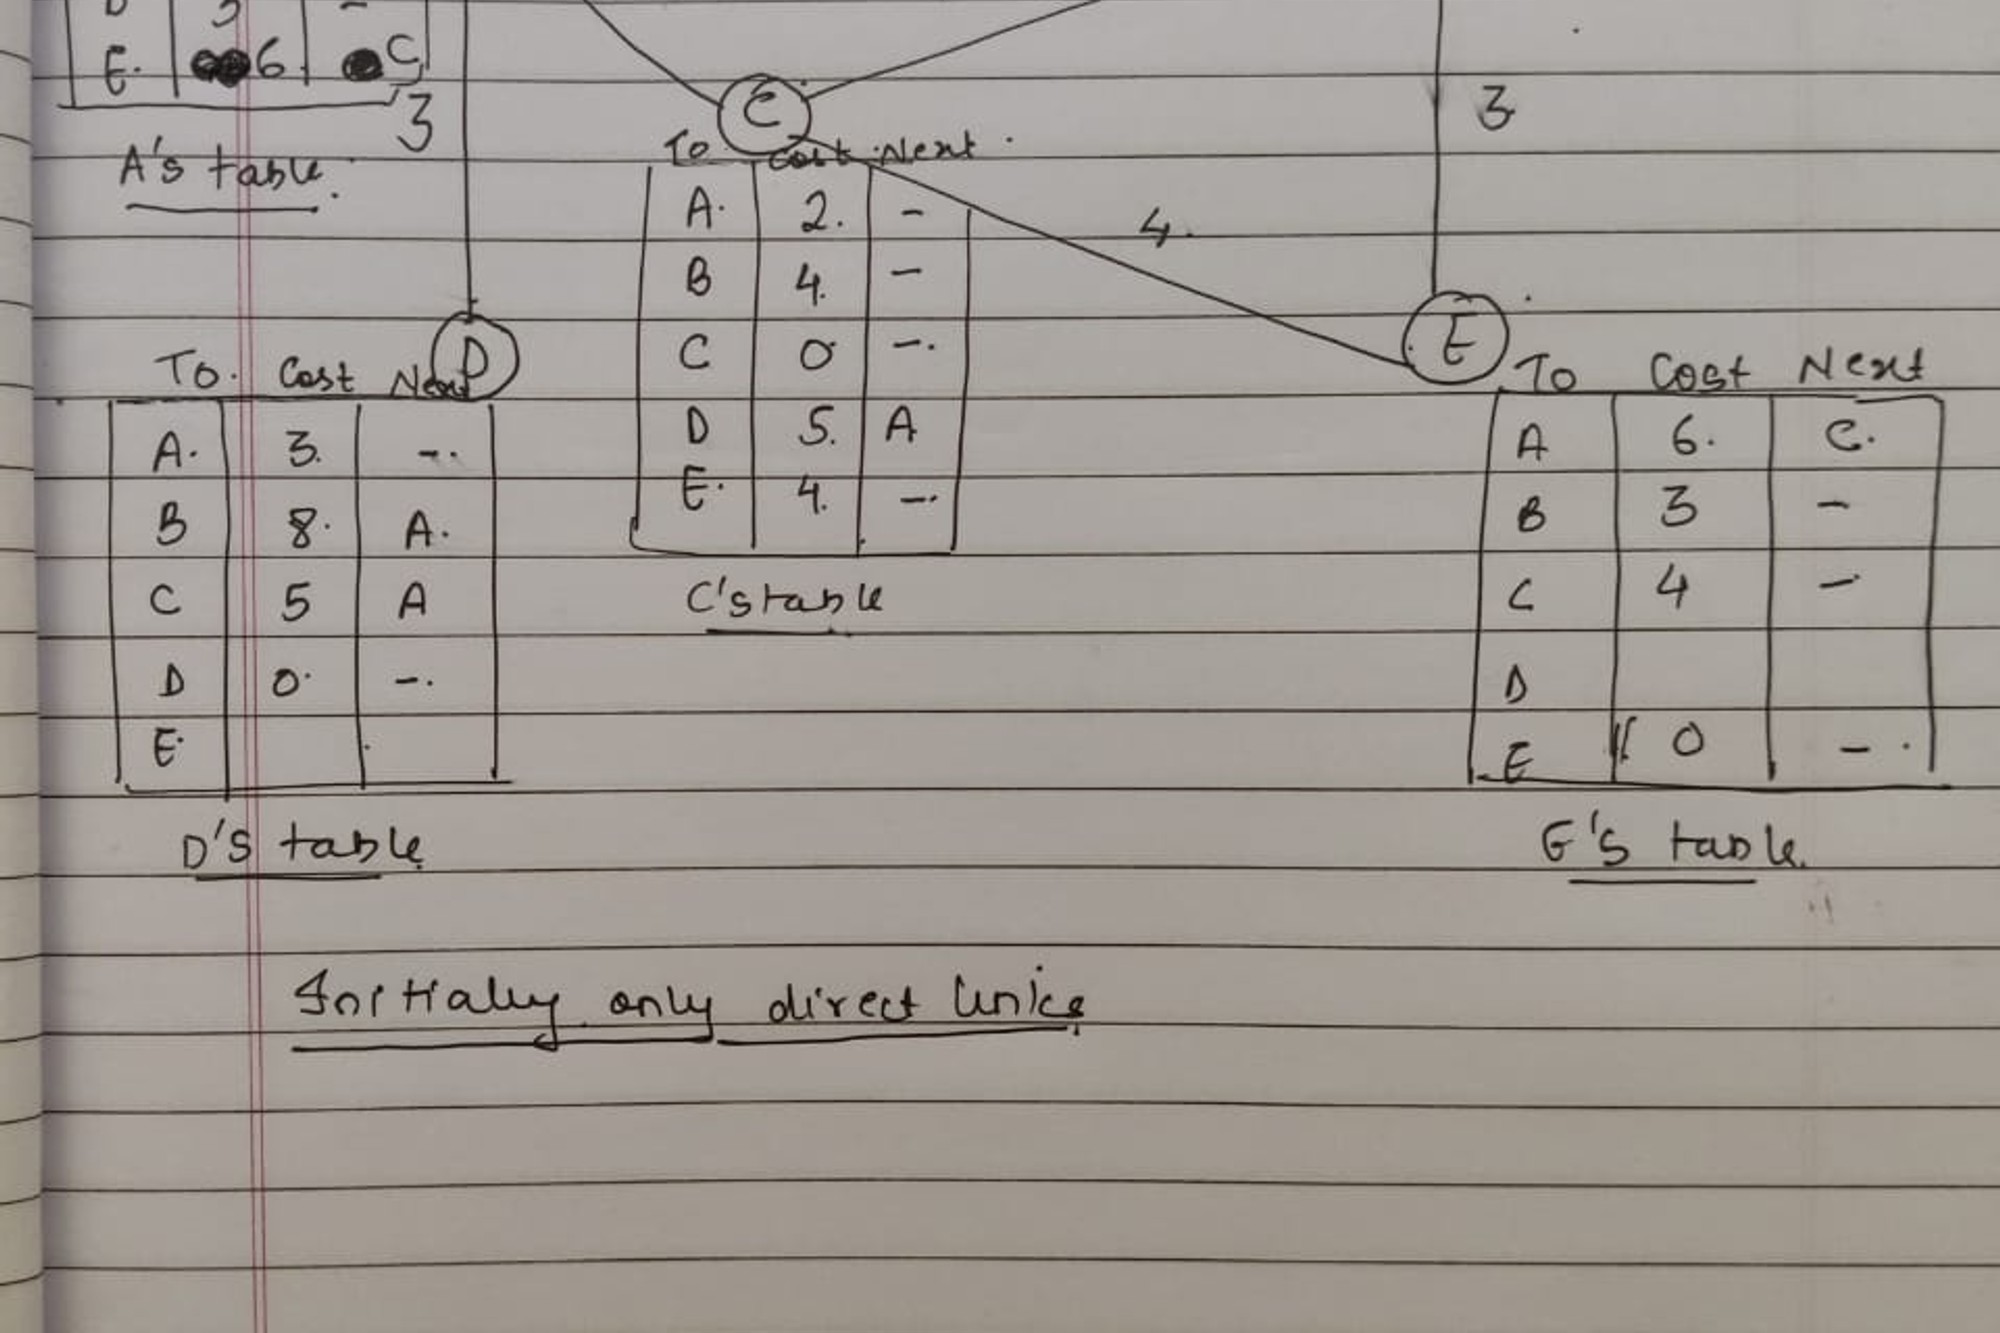 3 -
E. 6 C
3
A's table.
3
C
To Cost Next.
A. 2. -
B 4. -
C 0 -.
D 5. A
E. 4. -.
C's table
4.
D
To. Cost Next
A. 3. -.
B 8. A.
C 5 A
D 0. -.
E.
D's table
E
To Cost Next
A 6. C.
B 3 -
C 4 -
D
E 0 -.
E's table.
Initially only direct links